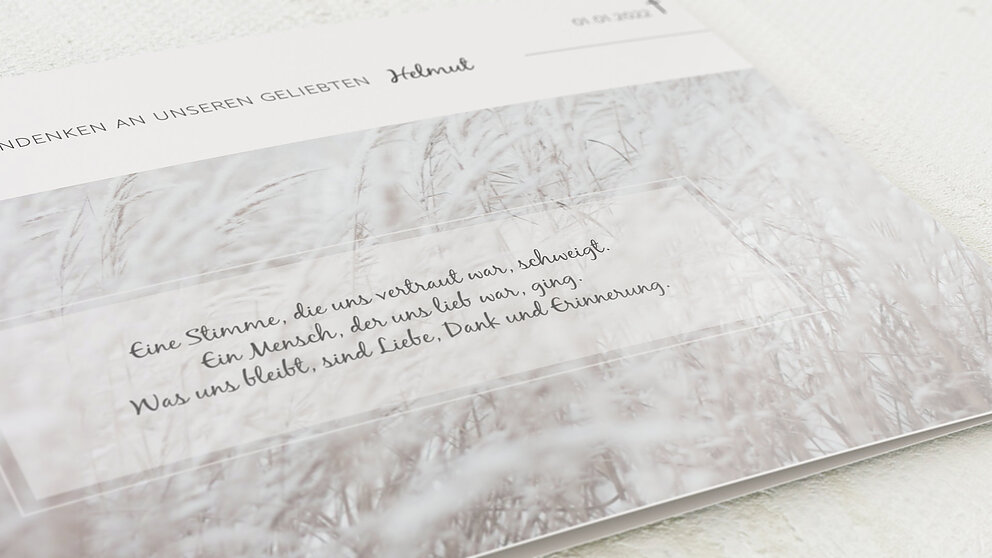 01.01.2022
NDENKEN AN UNSEREN GELIEBTEN Helmut
Eine Stimme, die uns vertraut war, schweigt.
Ein Mensch, der uns lieb war, ging.
Was uns bleibt, sind Liebe, Dank und Erinnerung.